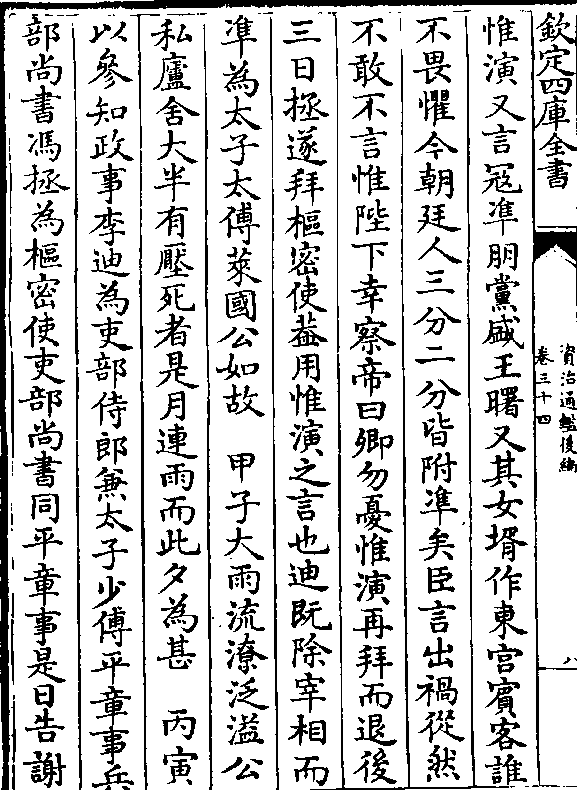 欽定四庫全書
資治通鑑後編
卷三十四
八
惟演又言冦凖朋黨盛王曙又其女壻作東宫賔客誰
不畏懼今朝廷人三分二分皆附凖矣臣言出禍從然
不敢不言惟陛下幸察帝曰卿勿憂惟演再拜而退後
三日拯遂拜樞密使葢用惟演之言也迪既除宰相而
凖為太子太傅萊國公如故　甲子大雨流潦泛溢公
私廬舍大半有壓死者是月連雨而此夕為甚　丙寅
以參知政事李迪為吏部侍郎兼太子少傅平章事兵
部尚書馮拯為樞密使吏部尚書同平章事是日告謝